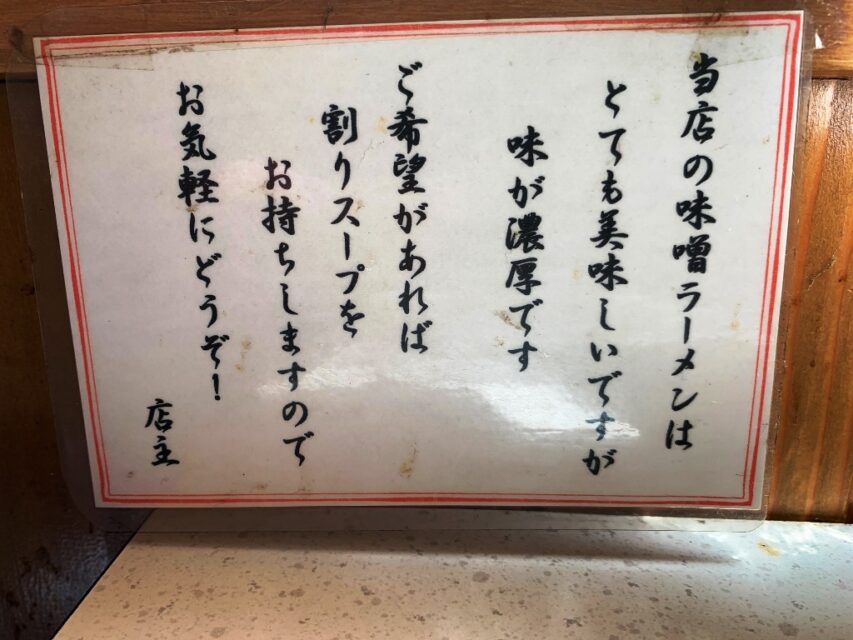 当店の味噌ラーメンは
とても美味しいですが
味が濃厚です
ご希望があれば
割りスープを
お持ちしますので
お気軽にどうぞ!
店主